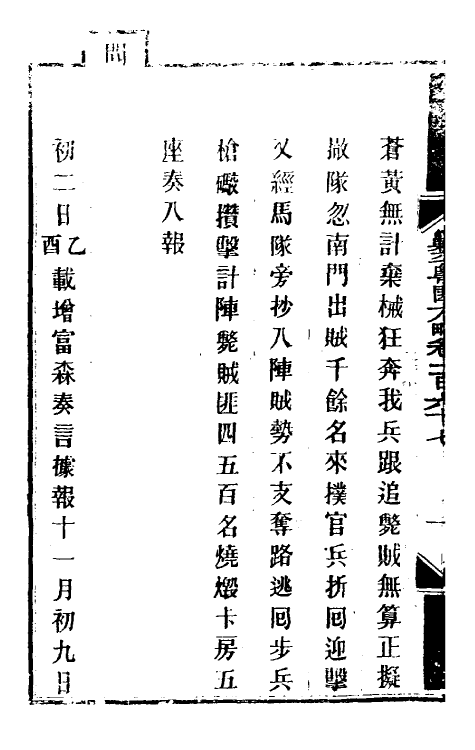 蒼黃無計棄械狂奔我兵跟追斃賊無算正擬
撤隊忽南門出賊千餘名來撲官兵折囘迎擊
又經馬隊旁抄入陣賊勢不支奪路逃囘步兵
槍礮攢擊計陣斃賊匪四五百名燒燬卡房五
座奏入報
聞
初二日乙酉載增富森奏言據報十一月初九日